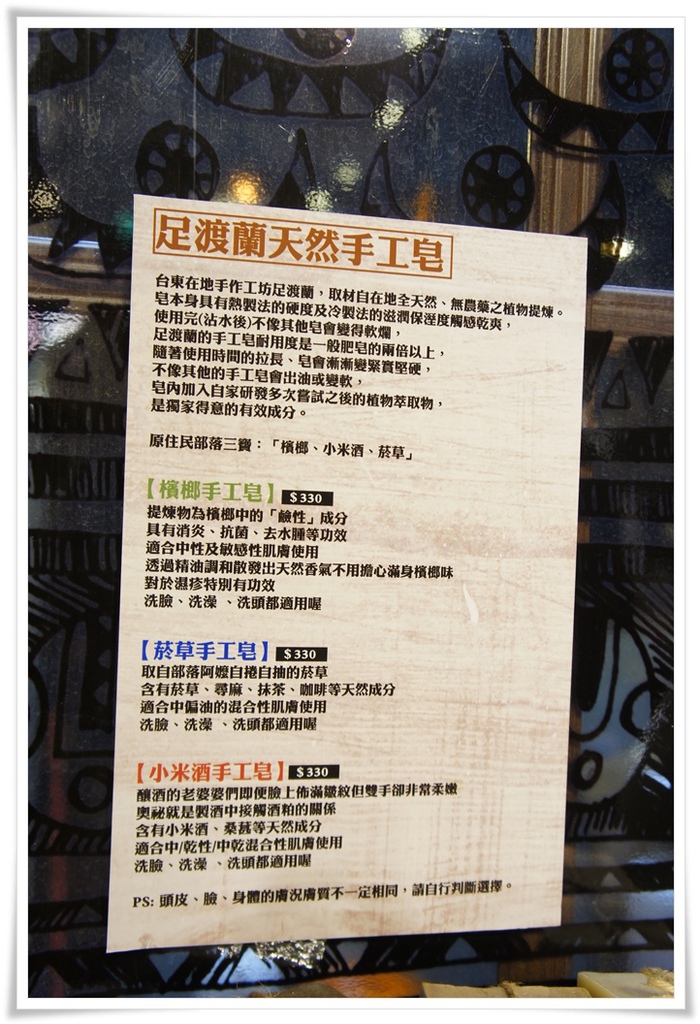 足渡蘭天然手工皂
台東在地手作工坊足渡蘭，取材自在地全天然、無農藥之植物提煉。
皂本身具有熱製法的硬度及冷製法的滋潤保溼度觸感乾爽，
使用完(沾水後)不像其他皂會變得軟爛，
足渡蘭的手工皂耐用度是一般肥皂的兩倍以上，
隨著使用時間的拉長、皂會漸漸變緊實堅硬，
不像其他的手工皂會出油或變軟，
皂內加入自家研發多次嘗試之後的植物萃取物，
是獨家得意的有效成分。
原住民部落三寶：「檳榔、小米酒、菸草」
【檳榔手工皂】 $330
提煉物為檳榔中的「鹼性」成分
具有消炎、抗菌、去水腫等功效
適合中性及敏感性肌膚使用
透過精油調和散發出天然香氣不用擔心滿身檳榔味
對於濕疹特別有功效
洗臉、洗澡 、洗頭都適用喔
【菸草手工皂】 $330
取自部落阿嬤自捲自抽的菸草
含有菸草、尋麻、抹茶、咖啡等天然成分
適合中偏油的混合性肌膚使用
洗臉、洗澡 、洗頭都適用喔
【小米酒手工皂】 $330
釀酒的老婆婆們即便臉上佈滿皺紋但雙手卻非常柔嫩
奧祕就是製酒中接觸酒粕的關係
含有小米酒、桑葚等天然成分
適合中/乾性/中乾混合性肌膚使用
洗臉、洗澡 、洗頭都適用喔
PS: 頭皮、臉、身體的膚況膚質不一定相同，請自行判斷選擇。